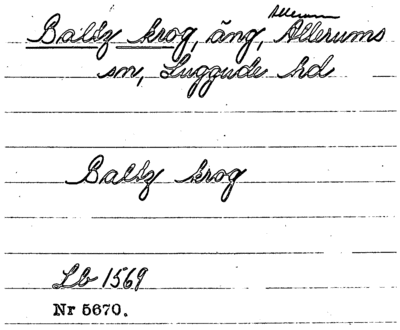 Allerum
Baltz krog, äng, Allerums
sn, Luggude hd
Baltz krog
Lb 1569
Nr 5670.